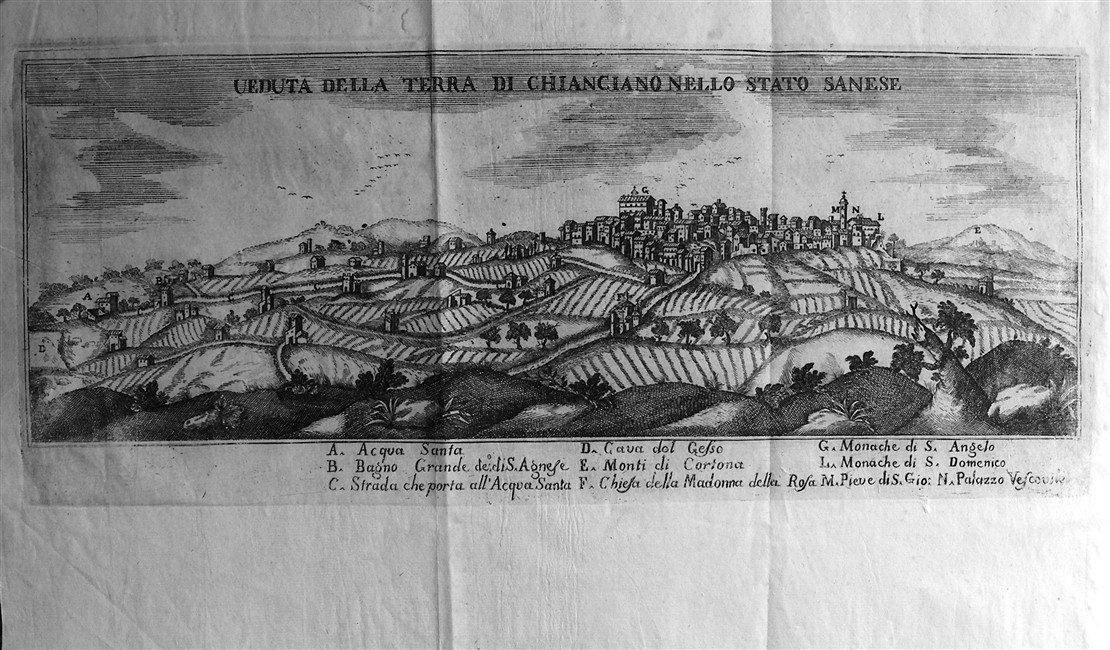 UEDUTA DELLA TERRA DI CHIANCIANO NELLO STATO SANESE
G
M N L
E
A
B
C
C
F
D
A. Acqua Santa
B. Bagno Grande deº. di S. Agnese
C. Strada che porta all'Acqua Santa
D. Cava del Gesso
E. Monti di Cortona
F. Chiesa della Madonna della Rosa
G. Monache di S. Angelo
L. Monache di S. Domenico
M. Pieve di S. Gio: N. Palazzo Vescovile